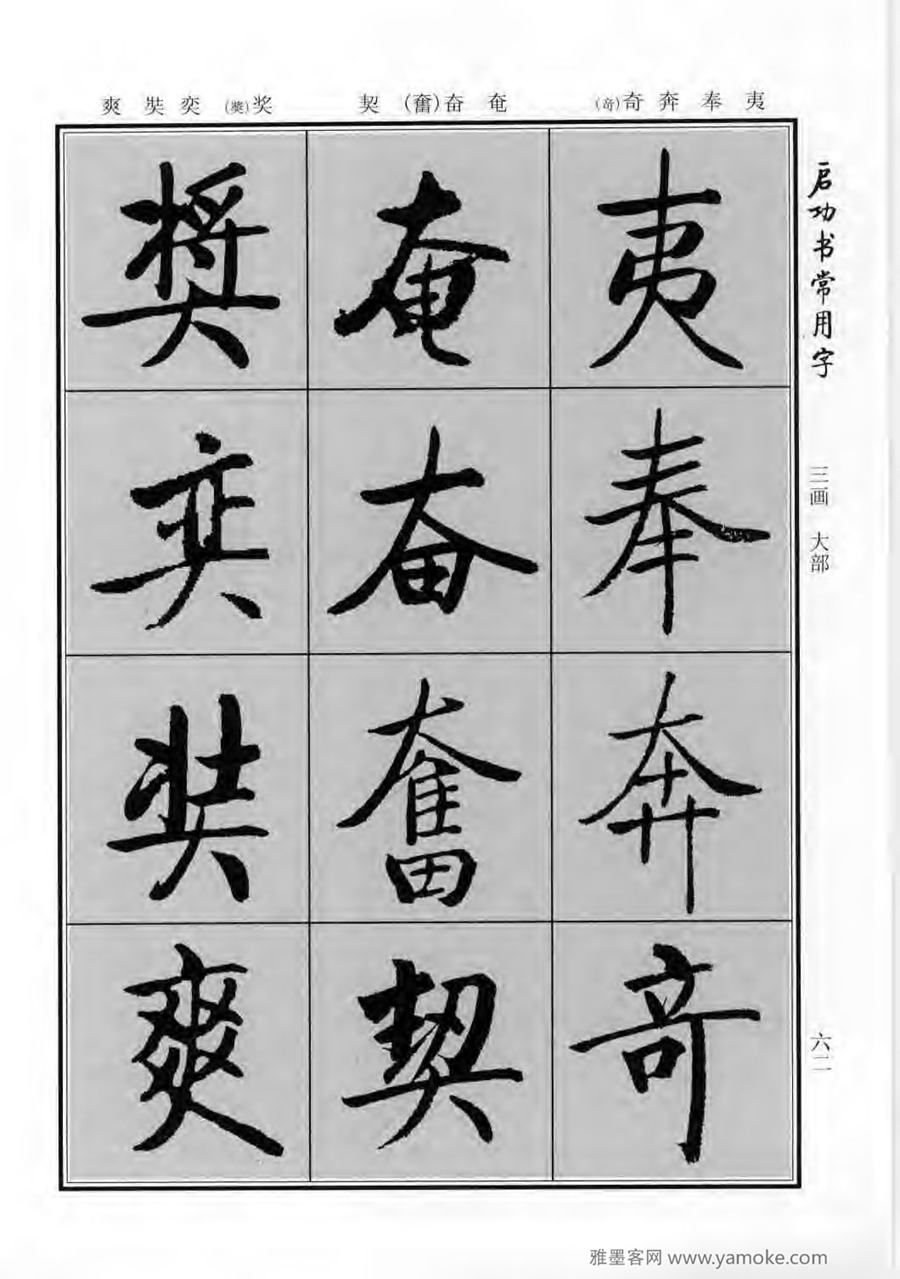 夷 奉 奔 奇(竒)
奄 奋(奮) 契
奖(奬) 奕 奘 爽
启功书常用字
三画 大部
六二
夷
奉
奔
竒
奄
奋
奮
契
奬
奕
奘
爽
雅墨客网 www.yamoke.com